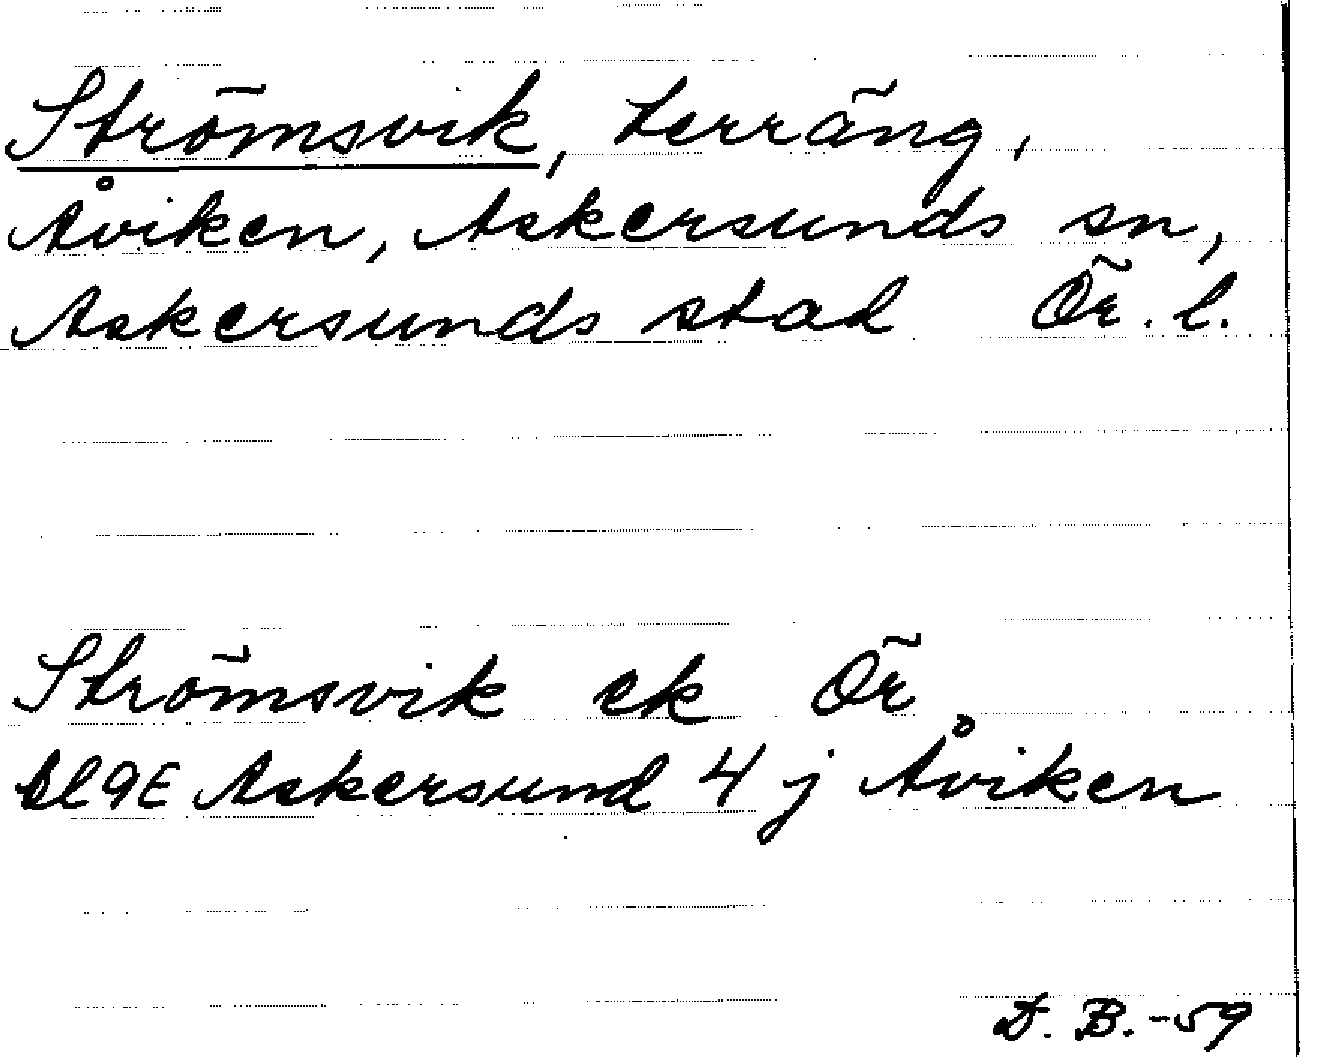 Strömsvik, terräng,
Åviken, Askersunds sn,
Askersunds stad Ör. l.
Strömsvik ek Ör
Bl9E Askersund 4 j Åviken
D. B. -59